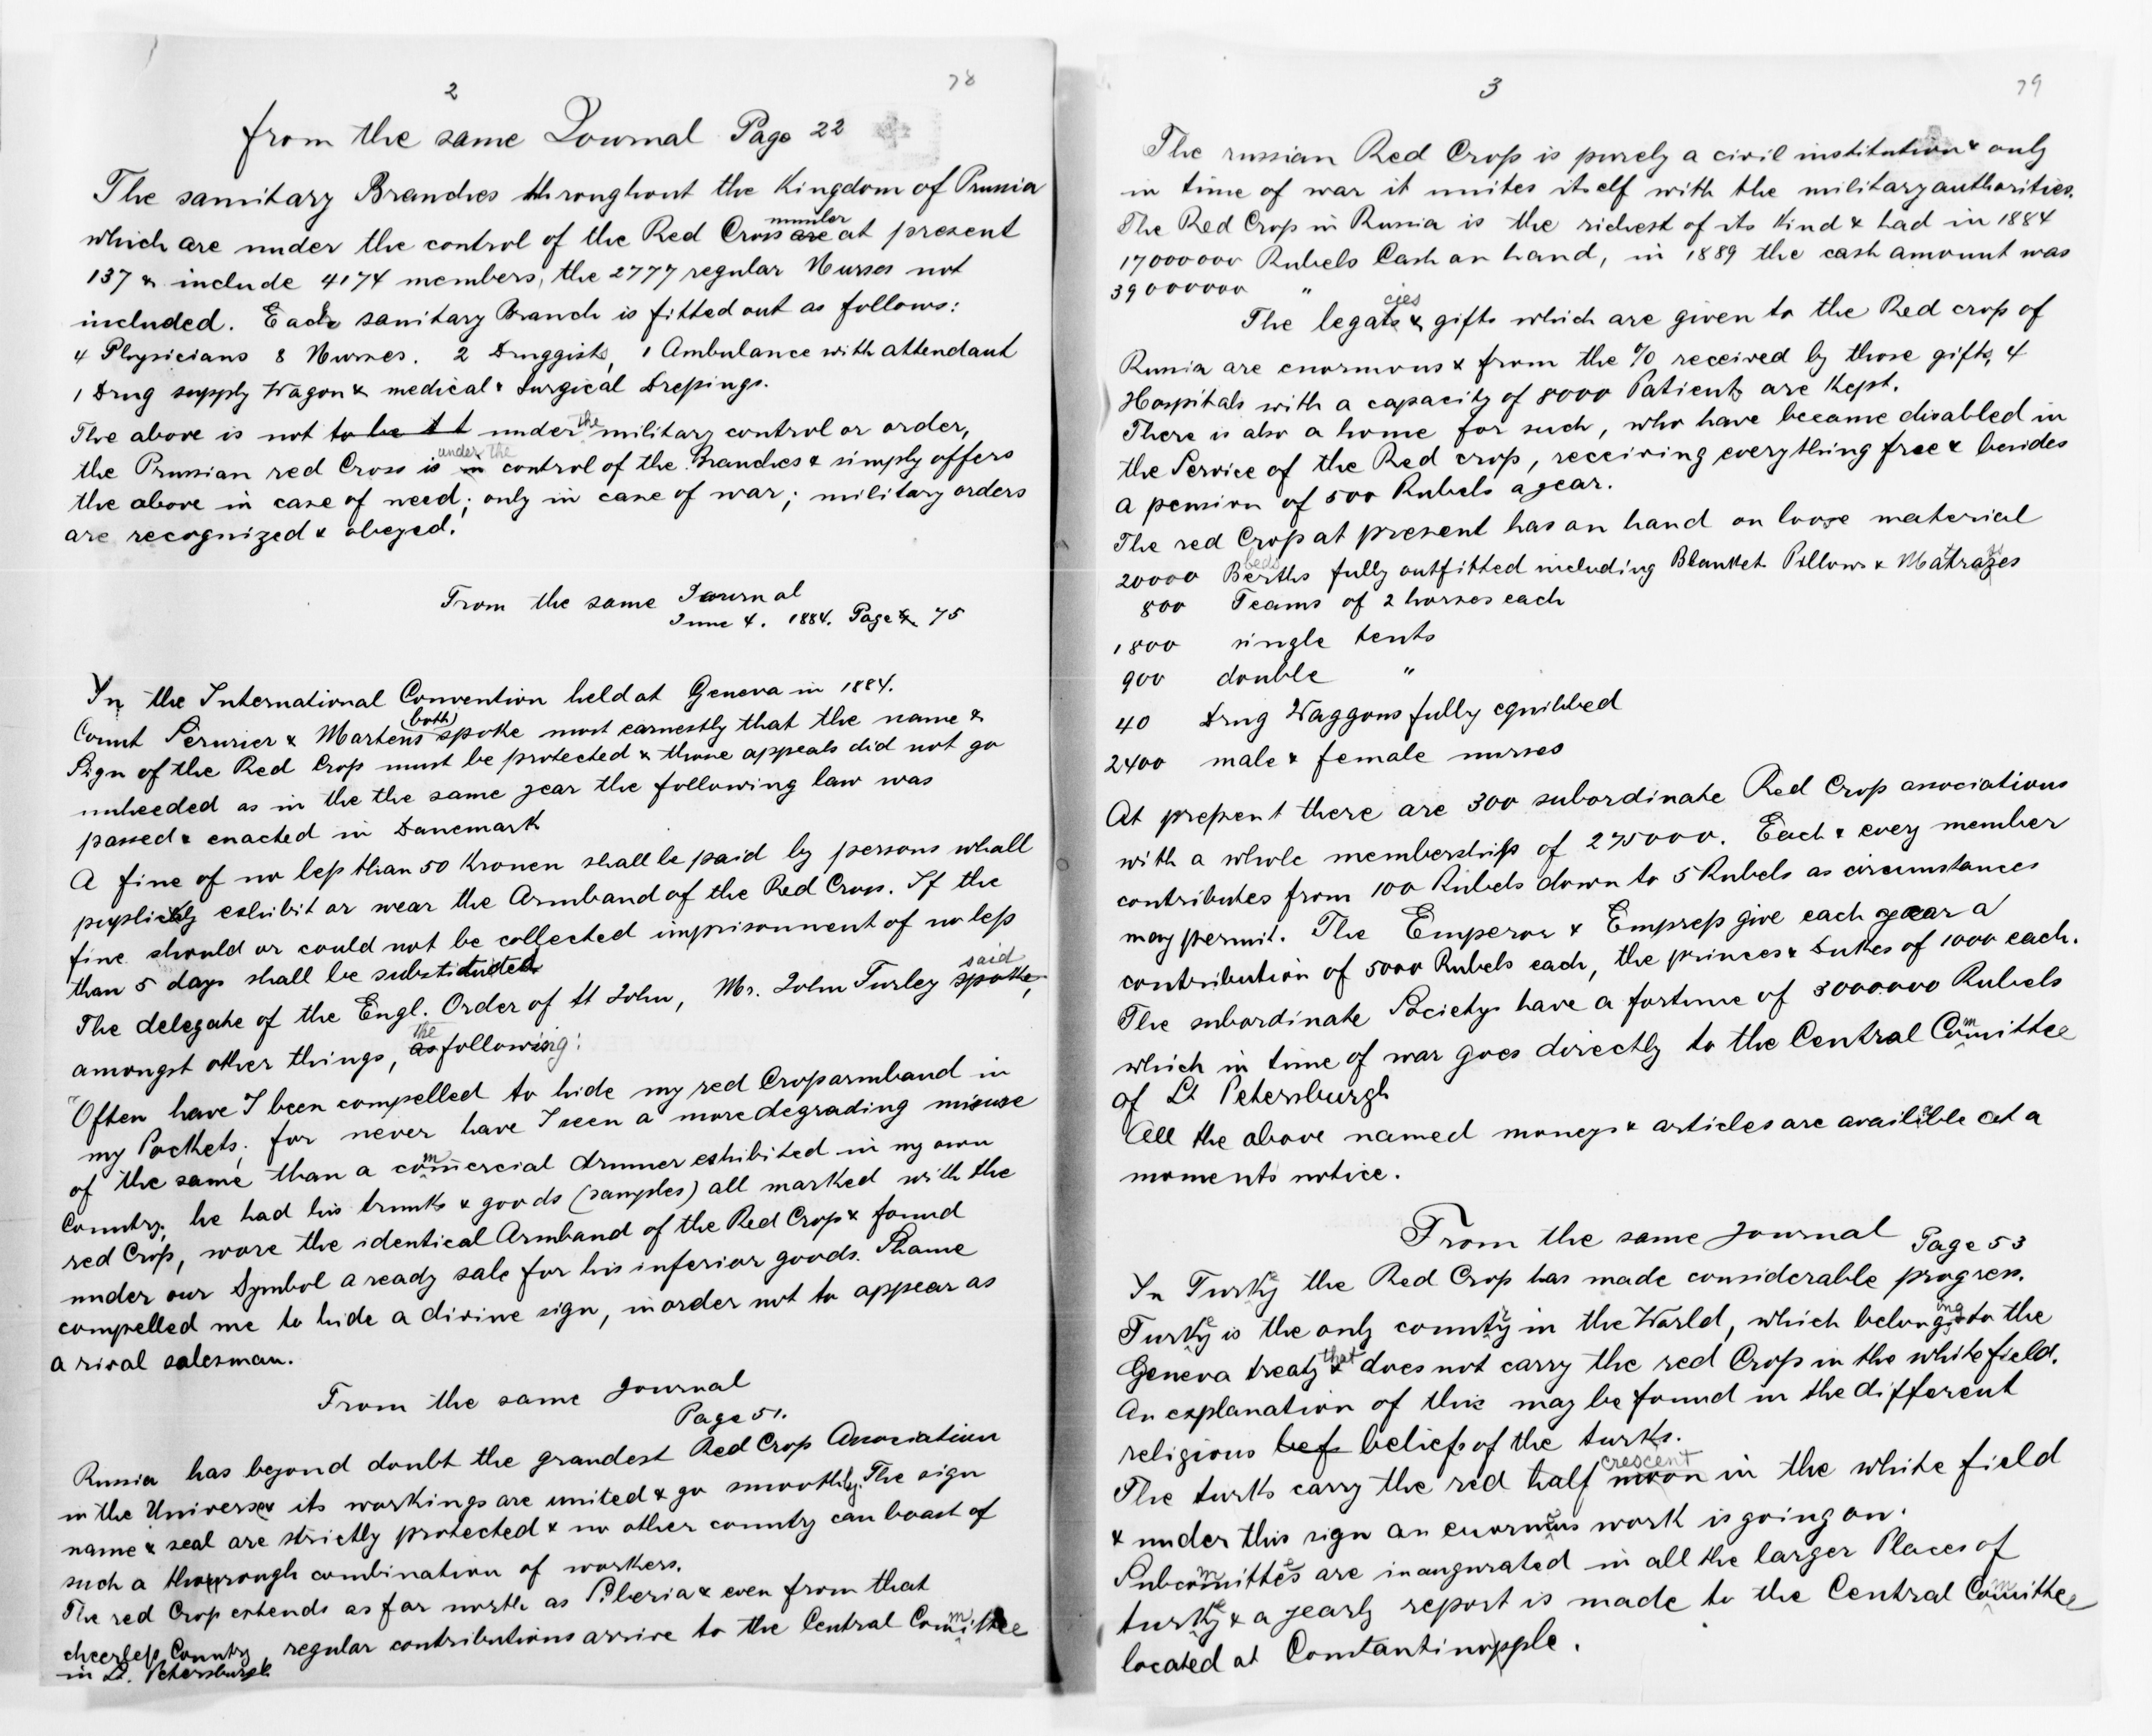 2
78
from the same Journal Page 22
The sanitary Branches throughout the Kingdom of Prussia
which are under the control of the Red Cross are number at present
137 & include 4174 members, the 2777 regular Nurses not
included. Each sanitary Branch is fitted out as follows:
4 Physicians 8 Nurses. 2 Druggists, 1 Ambulance with attendant
1 Drug supply Wagon & medical & Surgical Dressings.
The above is not to be under the military control or order,
the Prussian red Cross is in under the control of the Branches & simply offers
the above in case of need; only in case of war; military orders
are recognized & obeyed.
From the same Journal
June 4. 1884. Page 75
In the International Convention held at Geneva in 1884.
Count Serurier & Martens (both) spoke most earnestly that the name &
Sign of the Red Cross must be protected & those appeals did not go
unheeded as in the the same year the following law was
passed & enacted in Danemark
A fine of no less than 50 Kronen shall be paid by persons whall
puplicly exhibit or wear the Armband of the Red Cross. If the
fine should or could not be collected imprisonment of no less
than 5 days shall be substituted
The delegate of the Engl. Order of St John, Mr. John Furley spoke, said
amongst other things, as the following:
"Often have I been compelled to hide my red Cross armband in
my Pockets; for never have I seen a more degrading misuse
of the same than a commercial drumer exhibited in my own
Country; he had his trunks & goods (samples) all marked with the
red Cross, wore the identical Armband of the Red Cross & found
under our Symbol a ready sale for his inferior goods. Shame
compelled me to hide a divine sign, in order not to appear as
a rival salesman.
From the same Journal
Page 51.
Russia has beyond doubt the grandest Red Cross Association
in the Universe its workings are united & go smoothly. The sign
name & seal are strictly protected & no other country can boast of
such a thorough combination of workers.
The red Cross extends as far north as Siberia & even from that
cheerless Country, regular contributions arrive to the Central Committee
in St. Petersburgh
3
79
The russian Red Cross is purely a civil institution & only
in time of war it unites itself with the military authorities.
The Red Cross in Russia is the richest of its Kind & had in 1884
17000000 Rubels Cash on hand, in 1889 the cash amount was
39000000 "
The legacies & gifts which are given to the Red cross of
Russia are enormous & from the % received by those gifts, 4
Hospitals with a capacity of 8000 Patients are Kept.
There is also a home for such, who have became disabled in
the Service of the Red cross, receiving everything free & besides
a pension of 500 Rubels a year.
The red Cross at present has on hand on loose material
20000 Berths beds fully outfitted including Blanket Pillows & Matrazes
800 Teams of 2 horses each
1800 single tents
900 double "
40 Drug Waggons fully equibbed
2400 male & female nurses
At present there are 300 subordinate Red Cross associations
with a whole membership of 275000. Each & every member
contributes from 100 Rubels down to 5 Rubels as circumstances
may permit. The Emperor & Empress give each year a
contribution of 5000 Rubels each, the princes & Dukes of 1000 each.
The subordinate Societys have a fortune of 8000000 Rubels
which in time of war goes directly to the Central Committee
of St Petersburgh
All the above named moneys & articles are available at a
moments notice.
From the same Journal Page 53
In Turkey the Red Cross has made considerable progress.
Turkey is the only country in the World, which belonging to the
Geneva treaty & that does not carry the red Cross in the white field.
An explanation of this may be found in the different
religious bef beliefs of the turks.
The turks carry the red half moon crescent in the white field
& under this sign an enormous work is going on.
Subcommittees are inaugurated in all the larger Places of
turkey & a yearly report is made to the Central Committee
located at Constantinopple.